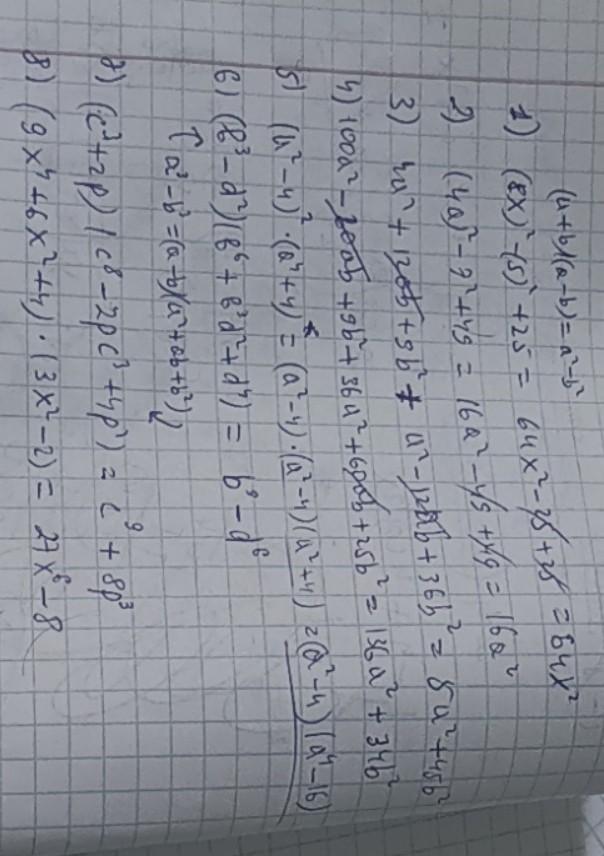 (a+b)(a-b)=a²-b²
1) (8x)²-(5)²+25 = 64x²-25+25 = 64x²
2) (4a)²-7²+49 = 16a²-49+49 = 16a²
3) 4a²+12ab+9b²+a²-12ab+36b² = 5a²+45b²
4) 100a²-60ab+9b²+36a²+60ab+25b² = 136a²+34b²
5) (a²-4)²·(a²+4) = (a²-4)·(a²-4)(a²+4) = (a²-4)(a⁴-16)
6) (b³-d²)(b⁶+b³d²+d⁴) = b⁹-d⁶
↑ a³-b³=(a-b)(a²+ab+b²)
7) (c³+2p)(c⁶-2pc³+4p²) = c⁹+8p³
8) (9x⁴+6x²+4)·(3x²-2) = 27x⁶-8